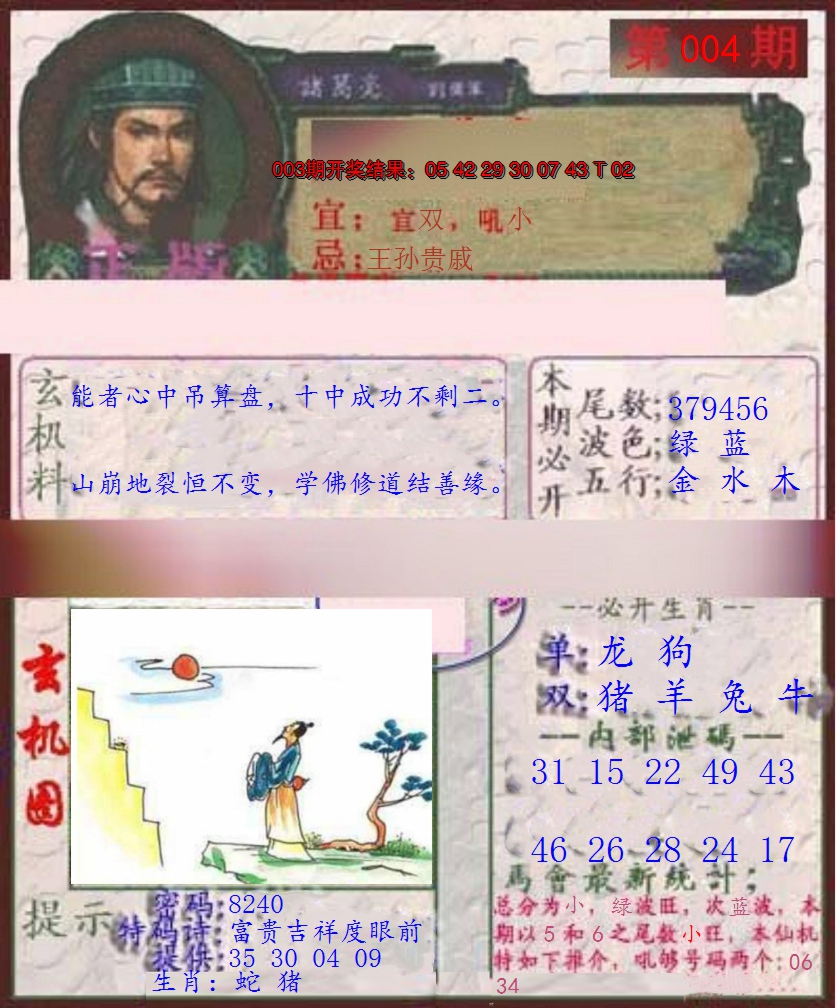 第 004 期
諸葛亮
003期开奖结果：05 42 29 30 07 43 T 02
宜：宜双，吼小
忌：王孙贵戚
正版
玄机料
能者心中吊算盘，十中成功不剩二。
山崩地裂恒不变，学佛修道结善缘。
本期必开
尾数；379456
波色；绿 蓝
五行；金 水 木
玄机图
--必开生肖--
单：龙 狗
双：猪 羊 兔 牛
一一内部泄碼一一
31 15 22 49 43
46 26 28 24 17
馬會最新統計；
总分为小，绿波旺，次蓝波，本
期以5和6之尾数小旺，本仙机
特如下推介，吼够号码两个：06
34
提示
密码：8240
特码诗：富贵吉祥度眼前
提供：35 30 04 09
生肖：蛇 猪